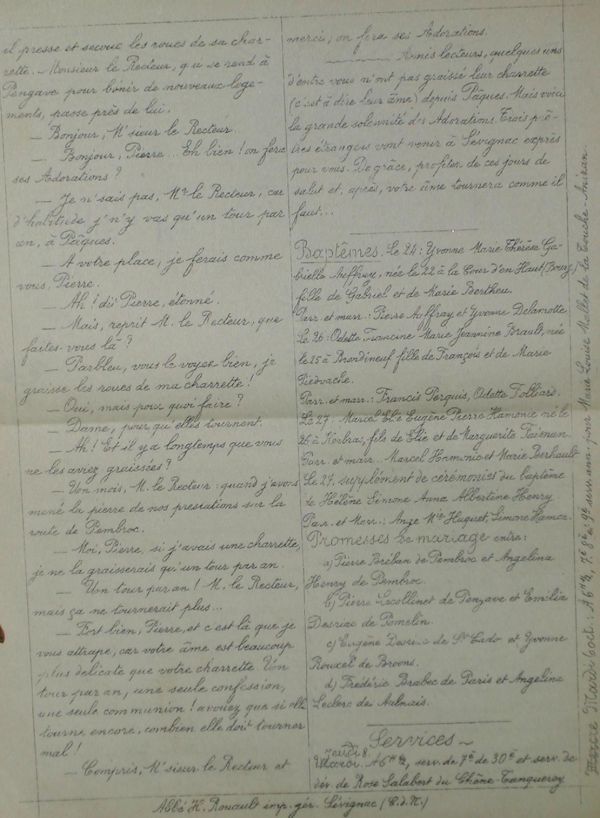 il presse et secoue les roues de sa char-
rette. Monsieur le Recteur, qui se rend à
Pengave pour bénir de nouveaux loge-
ments, passe près de lui.
— Bonjour, M'sieur le Recteur.
— Bonjour, Pierre... Eh bien! on fera
ses Adorations?
— Je n'sais pas, Mr le Recteur, car
d'habitude j'n'y vas qu'un tour par
an, à Pâques.
— A votre place, je ferais comme
vous, Pierre.
— Ah! dit Pierre, étonné.
— Mais, reprit M. le Recteur, que
faites-vous là?
— Parbleu, vous le voyez bien, je
graisse les roues de ma charrette!
— Oui, mais pour quoi faire?
— Dame, pour qu'elles tournent.
— Ah! Et il y a longtemps que vous
ne les aviez graissées?
— Un mois, M. le Recteur: quand j'avons
mené la pierre de nos prestations sur la
route de Pembroc.
— Moi, Pierre, si j'avais une charrette,
je ne la graisserais qu'un tour par an.
— Un tour par an! M. le Recteur,
mais ça ne tournerait plus...
— Fort bien, Pierre, et c'est là que je
vous attrape, car votre âme est beaucoup
plus délicate que votre charrette. Un
tour par an, une seule confession,
une seule communion! avouez que si elle
tourne encore, combien elle doit tourner
mal!
— Compris, M'sieur le Recteur et
merci, on fera ses Adorations.
Amis lecteurs, quelques uns
d'entre vous n'ont pas graissé leur charrette
(c'est à dire leur âme) depuis Pâques. Mais voici
la grande solennité des Adorations. Trois prê-
tres étrangers vont venir à Sévignac exprès
pour vous. De grâce, profitez de ces jours de
salut et, après, votre âme tournera comme il
faut...
Baptêmes. Le 24: Yvonne Marie Thérèse Ga-
brielle Auffray, née le 22 à la Cour d'en Haut (Bourg)
fille de Gabriel et de Marie Bertheu.
Parr. et marr.: Pierre Auffray et Yvonne Delamotte
Le 26: Odette Francine Marie Jeannine Brault, née
le 25 à Brondineuf fille de François et de Marie
Piedvache.
Parr. et marr.: Francis Perquis, Odette Folliard.
Le 27: Marcel Elie Eugène Pierre Hamonic né le
26 à Kerbras, fils de Elie et de Marguerite
Parr. et marr. Marcel Hamonic et Marie Berhault
Le 27, supplément de cérémonies du baptême
de Hélène Simone Anna Albertine Henry
Par. et Marr.: Ange Mie Huguet, Simone Hamon.
Promesses de mariage entre:
a) Pierre Bréban de Pembroc et Angelina
Henry de Pembroc.
b) Pierre Lecollinet de Penzave et Emilia
Desriac de Pomelin.
c) Eugène Desriac de St Cado et Yvonne
Rouxel de Broons.
d) Frédéric Brabec de Paris et Angelina
Leclerc de Aulnais.
Services
Jeudi 8
Mardi. A 6h ½, serv. de 7e de 30e et serv. de
dév. de Rose Salabert du Chêne-Tanqueroy
Mardi 6 oct: A 6h ½, 7e 8e et 9e serv. ann. pour Marie Louise Mallet de la Touche-
Abbé H. Rouault imp. gér. Sévignac (C.d.N.)